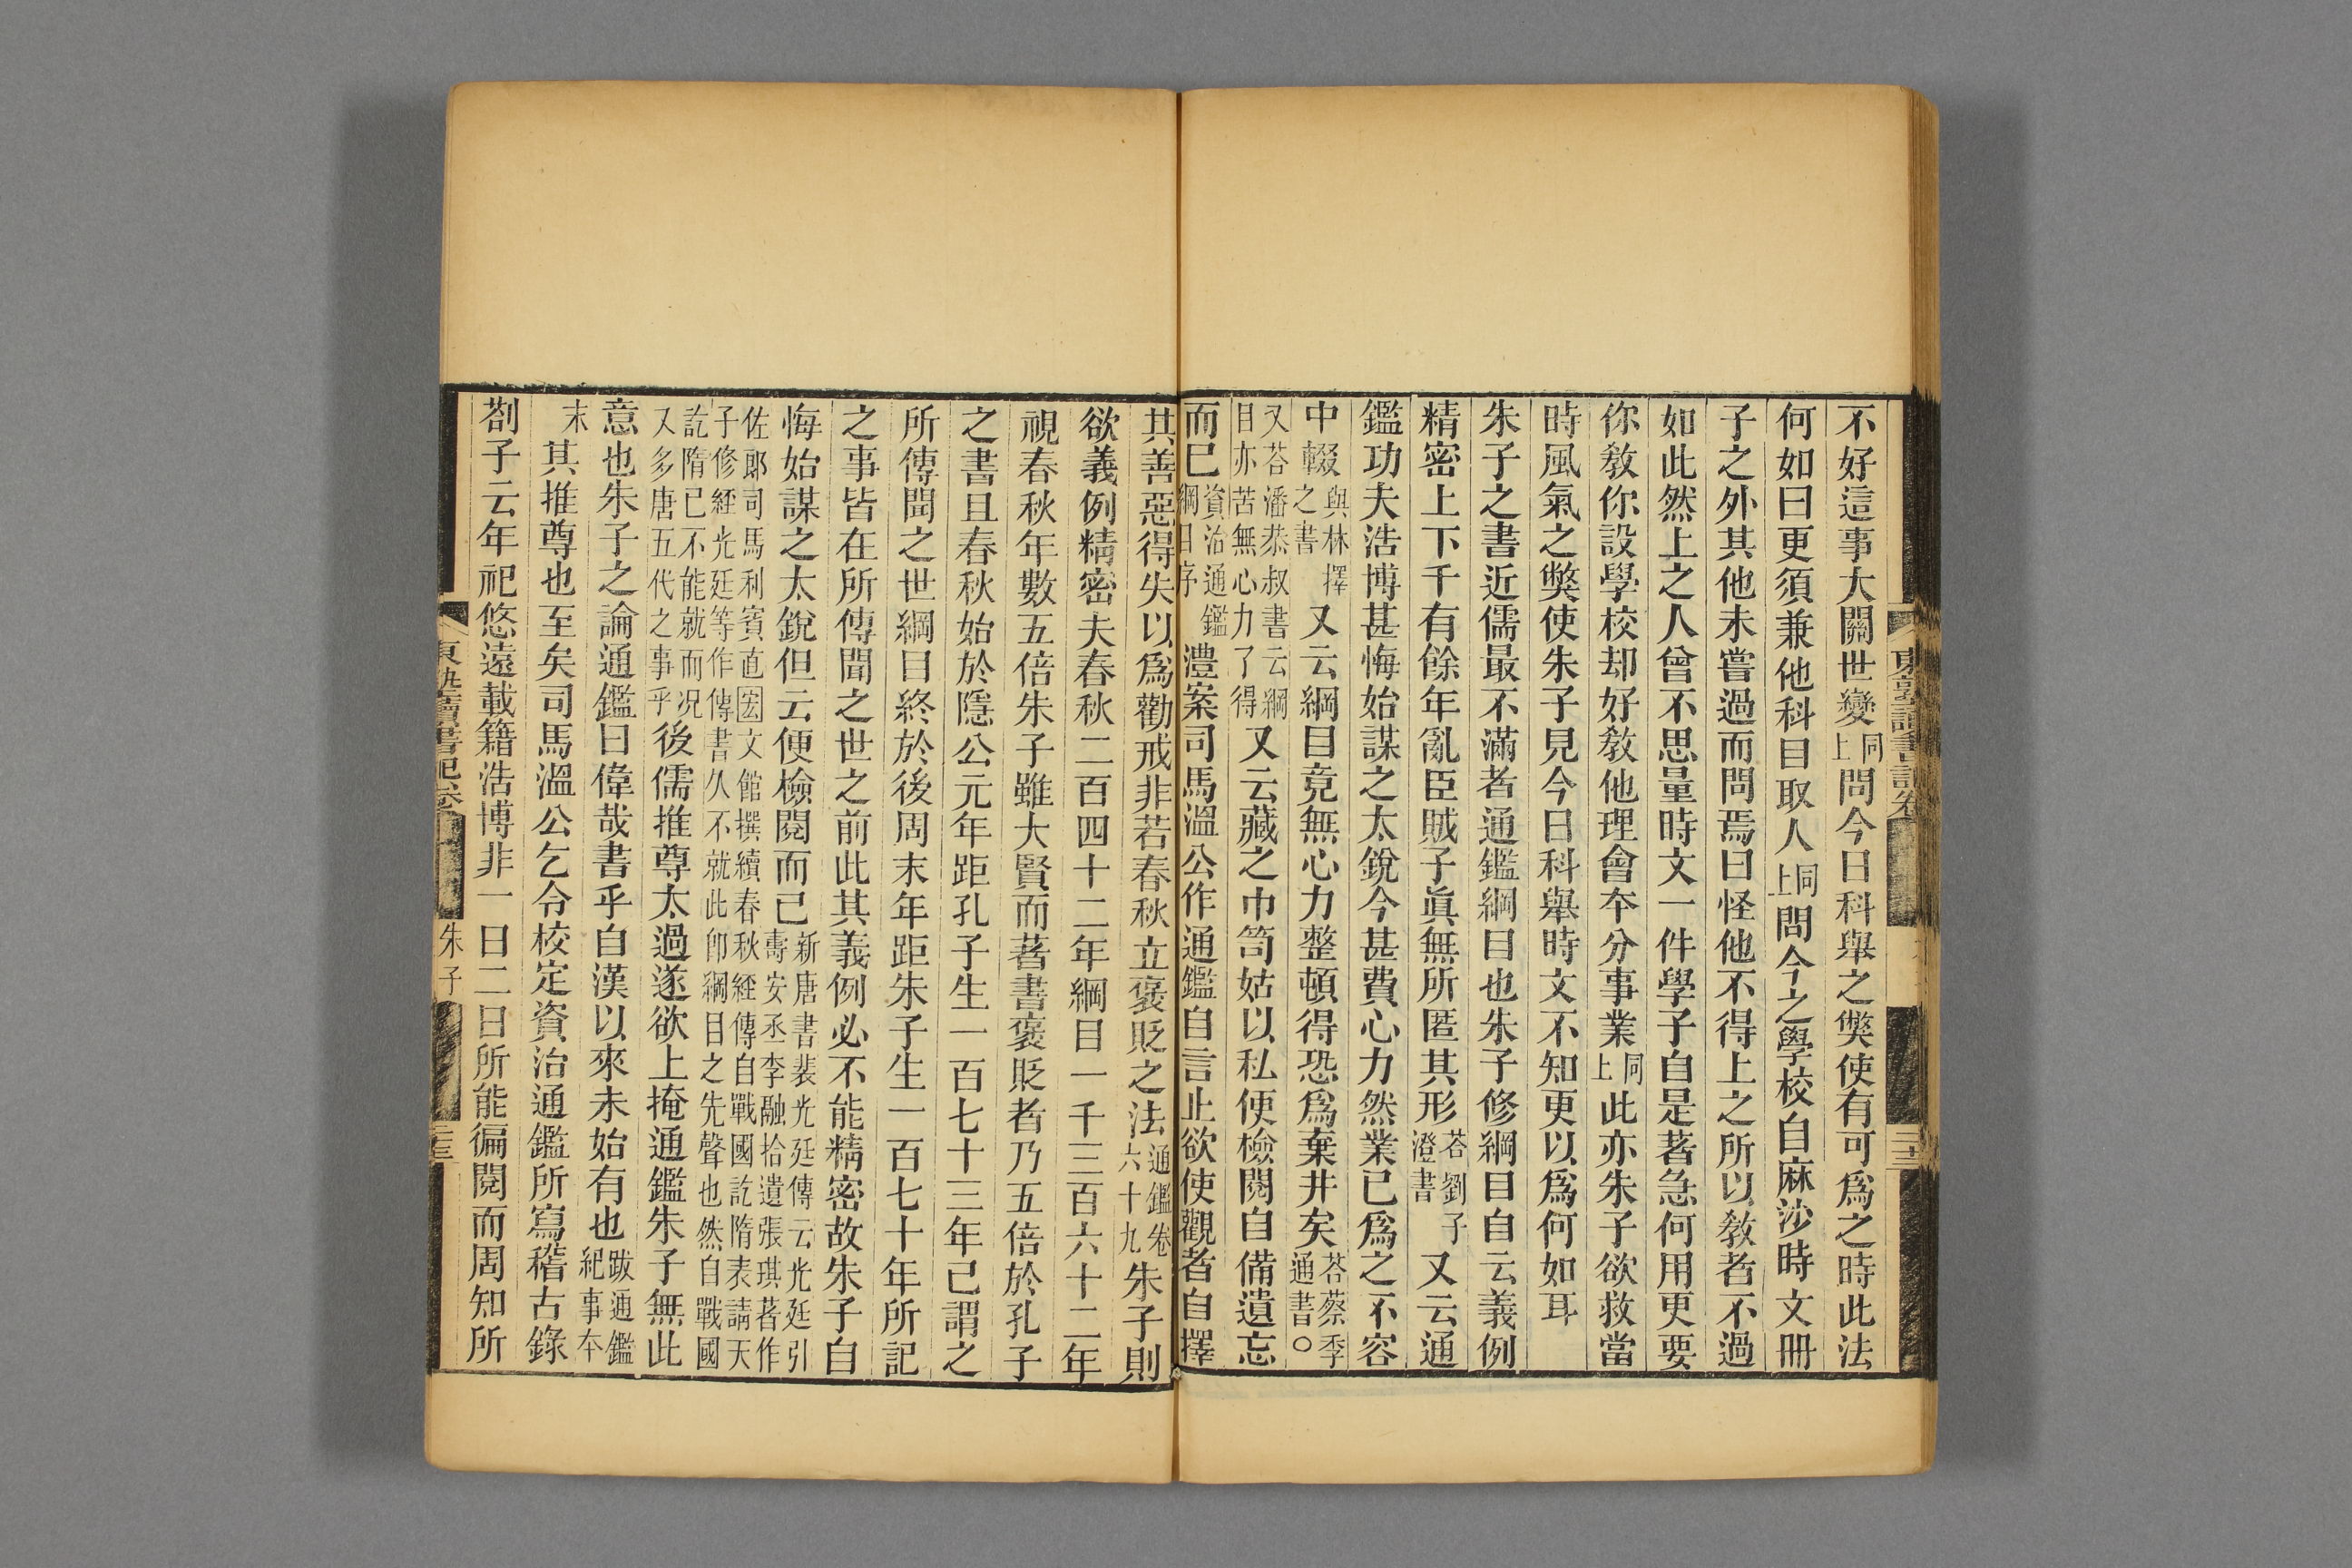 不好這事大關世變同上問今日科舉之獘使有可爲之時此法
何如曰更須兼他科目取人同上問今之學校自麻沙時文冊
子之外其他未嘗過而問焉曰怪他不得上之所以敎者不過
如此然上之人曾不思量時文一件學子自是著急何用更要
你敎你設學校却好敎他理會本分事業同上此亦朱子欲救當
時風氣之獘使朱子見今日科舉時文不知更以爲何如耳
朱子之書近儒最不滿者通鑑綱目也朱子修綱目自云義例
精密上下千有餘年亂臣賊子眞無所匿其形荅劉子澄書又云通
鑑功夫浩博甚悔始謀之太銳今甚費心力然業已爲之不容
中輟與林擇之書又云綱目竟無心力整頓得恐爲棄井矣荅蔡季通書○
又荅潘恭叔書云綱目亦苦無心力了得又云藏之巾笥姑以私便檢閱自備遺忘
而已資治通鑑綱目序澧案司馬溫公作通鑑自言止欲使觀者自擇
其善惡得失以爲勸戒非若春秋立褒貶之法通鑑卷六十九朱子則
欲義例精密夫春秋二百四十二年綱目一千三百六十二年
視春秋年數五倍朱子雖大賢而著書褒貶者乃五倍於孔子
之書且春秋始於隱公元年距孔子生一百七十三年已謂之
所傳聞之世綱目終於後周末年距朱子生一百七十年所記
之事皆在所傳聞之世之前此其義例必不能精密故朱子自
悔始謀之太銳但云便檢閱而已新唐書裴光廷傳云光廷引壽安丞李融拾遺張琪著作
佐郎司馬利賓直宏文館撰續春秋經傳自戰國訖隋表請天子修經光廷等作傳書久不就此卽綱目之先聲也然自戰國
訖隋已不能就而况又多唐五代之事乎後儒推尊太過遂欲上掩通鑑朱子無此
意也朱子之論通鑑曰偉哉書乎自漢以來未始有也跋通鑑紀事本
末其推尊也至矣司馬溫公乞令校定資治通鑑所寫稽古錄
劄子云年祀悠遠載籍浩博非一日二日所能徧閱而周知所
東塾讀書記卷
朱子